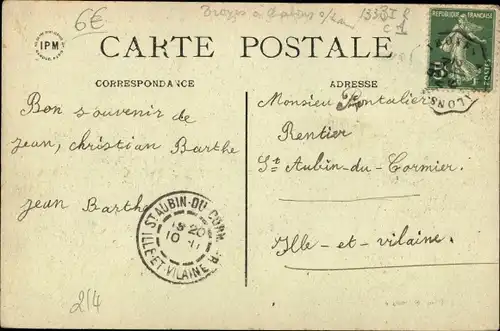 6€
1333 I
C 1
IPM
CARTE POSTALE
CORRESPONDANCE
ADRESSE
Bon souvenir de
Jean, Christian Barthe
Jean Barthe
Monsieur Pontalier
Rentier
St Aubin-du-Cormier.
Ille-et-vilaine.
ST AUBIN-DU-CORM
15 20
10
ILLE-ET-VILAINE
REPUBLIQUE FRANÇAISE
2/4